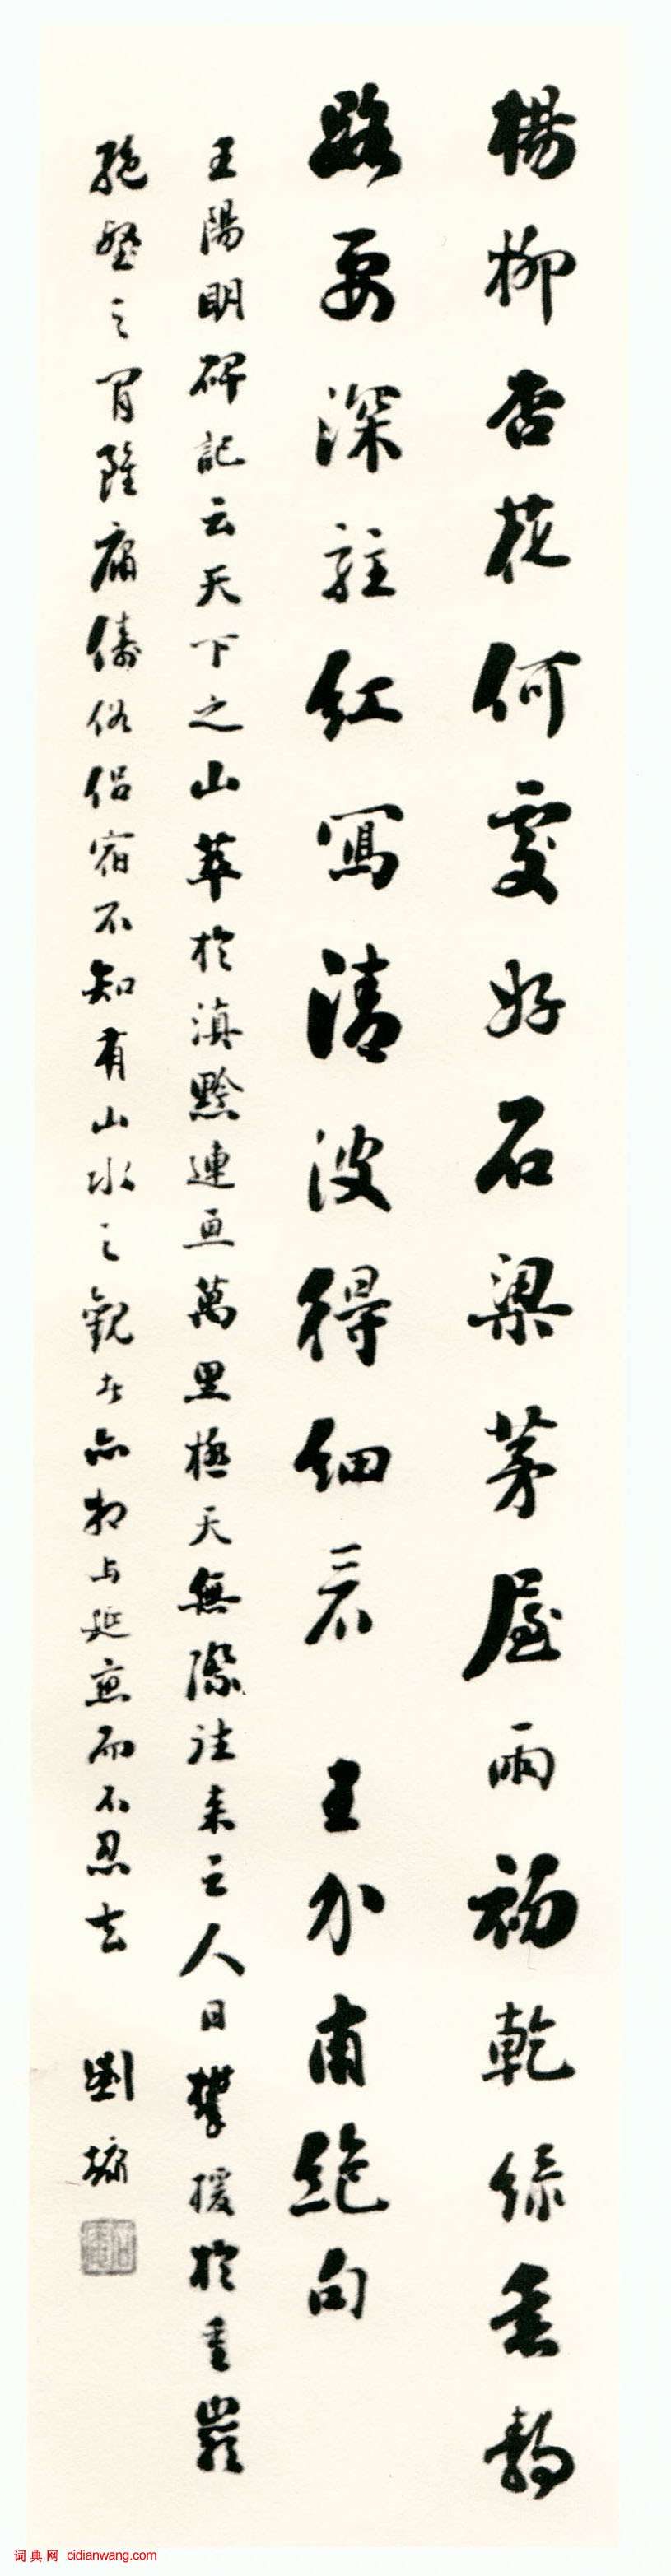 楊柳杏花何處好石梁茅屋雨初乾綠垂靜
路要深駐紅寫清波得細看 王介甫絕句
王陽明碑記云天下之山萃於滇黔連亘萬里極天無際往來之人日攀援於重巖
絕壑之間雖庸儔俗侶宿不知有山水之觀者亦相与延戀而不忍去 劉墉
词典网 cidianwang.com